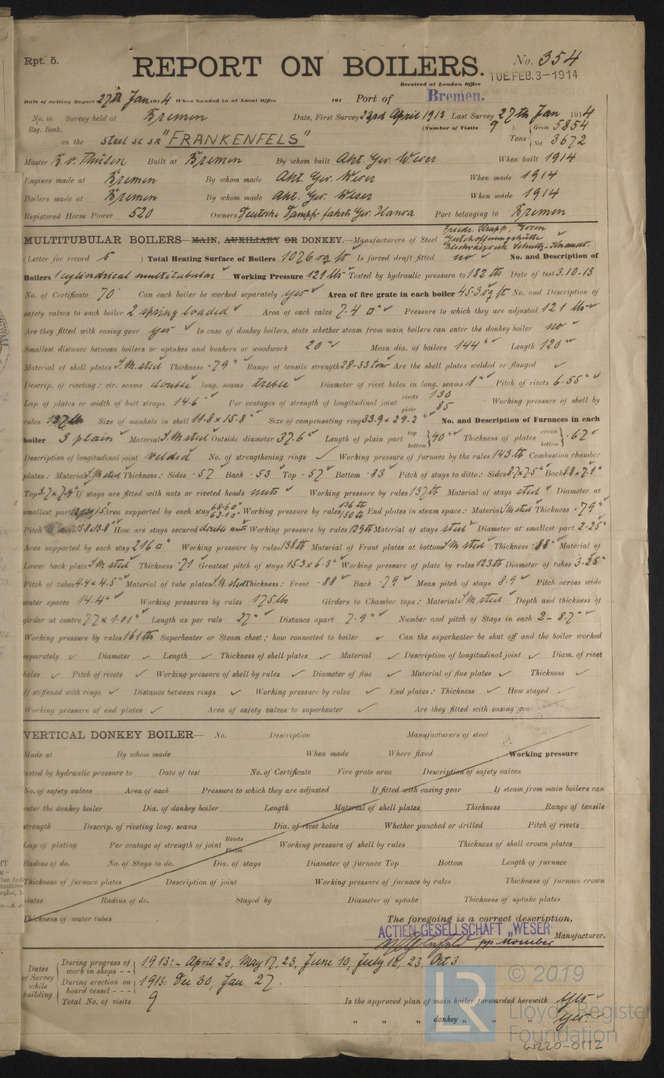 Rpt. 5.
REPORT ON BOILERS.
No. 354
Received at London Office
TUE. FEB. 3 - 1914
Date of writing Report 27th Jan 1914 When handed in at Local Office 191 Port of Bremen.
No. in Survey held at Bremen Date, First Survey 23rd April 1913 Last Survey 27th Jan 1914
Reg. Book.
(Number of Visits 9
on the steel sc sr "FRANKENFELS"
Tons Gross 5854
Net 3672
Master Built at Bremen By whom built Akt. Ges. Weser When built 1914
Engines made at Bremen By whom made Akt. Ges. Weser When made 1914
Boilers made at Bremen By whom made Akt. Ges. Weser When made 1914
Registered Horse Power 520 Owners Deutsche Dampfs. fahrts Ges. Hansa Port belonging to Bremen
MULTITUBULAR BOILERS MAIN, AUXILIARY OR DONKEY.—Manufacturers of Steel Friedr. Krupp, Essen
(Letter for record S ) Total Heating Surface of Boilers 1076 sq ft Is forced draft fitted no No. and Description of
Boilers 1 cylindrical multitubular Working Pressure 121 lbs Tested by hydraulic pressure to 182 lb Date of test 3.10.13
No. of Certificate 70 Can each boiler be worked separately yes Area of fire grate in each boiler 45.3 sq ft No. and Description of
safety valves to each boiler 2 spring loaded Area of each valve 7.4 Pressure to which they are adjusted 121 lbs
Are they fitted with easing gear yes In case of donkey boilers, state whether steam from main boilers can enter the donkey boiler no
Smallest distance between boilers or uptakes and bunkers or woodwork 20" Mean dia. of boilers 144" Length 120"
Material of shell plates S.M. steel Thickness .79" Range of tensile strength 28-33 tons Are the shell plates welded or flanged
Descrip. of riveting: cir. seams double long. seams treble Diameter of rivet holes in long. seams 1" Pitch of rivets 6.55"
Lap of plates or width of butt straps 14.6" Per centages of strength of longitudinal joint rivets 130 plate 85 Working pressure of shell by
rules 137 lb Size of manhole in shell 11.8 x 15.8" Size of compensating ring 33.9 x 29.2 No. and Description of Furnaces in each
boiler 3 plain Material S.M. steel Outside diameter 37.6 Length of plain part top bottom 90" Thickness of plates crown bottom .67"
Description of longitudinal joint welded No. of strengthening rings Working pressure of furnace by the rules 143 lb Combustion chamber
plates: Material S.M. steel Thickness: Sides .57 Back .53 Top .57 Bottom .83 Pitch of stays to ditto: Sides 8.7 x 7.5" Back 8 x 7.9"
Top If stays are fitted with nuts or riveted heads nuts Working pressure by rules 137 lb Material of stays steel Diameter at
smallest part Area supported by each stay Working pressure by rules End plates in steam space: Material S.M. steel Thickness .79"
Pitch of stays 15.8 x 13.8" How are stays secured double nuts Working pressure by rules 129 lb Material of stays steel Diameter at smallest part 2.25"
Area supported by each stay 216 Working pressure by rules 138 lb Material of Front plates at bottom S.M. steel Thickness .88" Material of
Lower back plate S.M. steel Thickness .71 Greatest pitch of stays 15.3 x 6.3" Working pressure of plate by rules 123 lb Diameter of tubes 3.25"
Pitch of tubes 4.4 x 4.5" Material of tube plates S.M. steel Thickness: Front .88" Back .79" Mean pitch of stays 8.9" Pitch across wide
water spaces 14.4" Working pressures by rules 175 lbs Girders to Chamber tops: Material S.M. steel Depth and thickness of
girder at centre 7.7 x 1.01" Length as per rule 27" Distance apart 7.9" Number and pitch of Stays in each 2 - 8.7"
Working pressure by rules 161 lb Superheater or Steam chest; how connected to boiler Can the superheater be shut off and the boiler worked
separately Diameter Length Thickness of shell plates Material Description of longitudinal joint Diam. of rivet
holes Pitch of rivets Working pressure of shell by rules Diameter of flue Material of flue plates Thickness
If stiffened with rings Distance between rings Working pressure by rules End plates: Thickness How stayed
Working pressure of end plates Area of safety valves to superheater Are they fitted with easing gear
VERTICAL DONKEY BOILER— No. Description Manufacturers of steel
Made at By whom made When made Where fixed Working pressure
tested by hydraulic pressure to Date of test No. of Certificate Fire grate area Description of safety valves
No. of safety valves Area of each Pressure to which they are adjusted If fitted with easing gear If steam from main boilers can
enter the donkey boiler Dia. of donkey boiler Length Material of shell plates Thickness Range of tensile
strength Descrip. of riveting long. seams Dia. of rivet holes Whether punched or drilled Pitch of rivets
Lap of plating Per centage of strength of joint Rivets Plates Working pressure of shell by rules Thickness of shell crown plates
Radius of do. No. of Stays to do. Dia. of stays Diameter of furnace Top Bottom Length of furnace
Thickness of furnace plates Description of joint Working pressure of furnace by rules Thickness of furnace crown
plates Radius of do. Stayed by Diameter of uptake Thickness of uptake plates
Thickness of water tubes
The foregoing is a correct description,
ACTIEN-GESELLSCHAFT „WESER" Manufacturer.
Dates of Survey while building
During progress of work in shops - - 1913:- April 23, May 17, 23, June 10, July 18, 23, Oct 3
During erection on board vessel - - - 1913: Dec 30, Jan 27.
Total No. of visits 9
Is the approved plan of main boiler forwarded herewith yes
„ „ „ donkey „ „ „ yes
© 2019
Lloyd's Register
Foundation
W220-0112